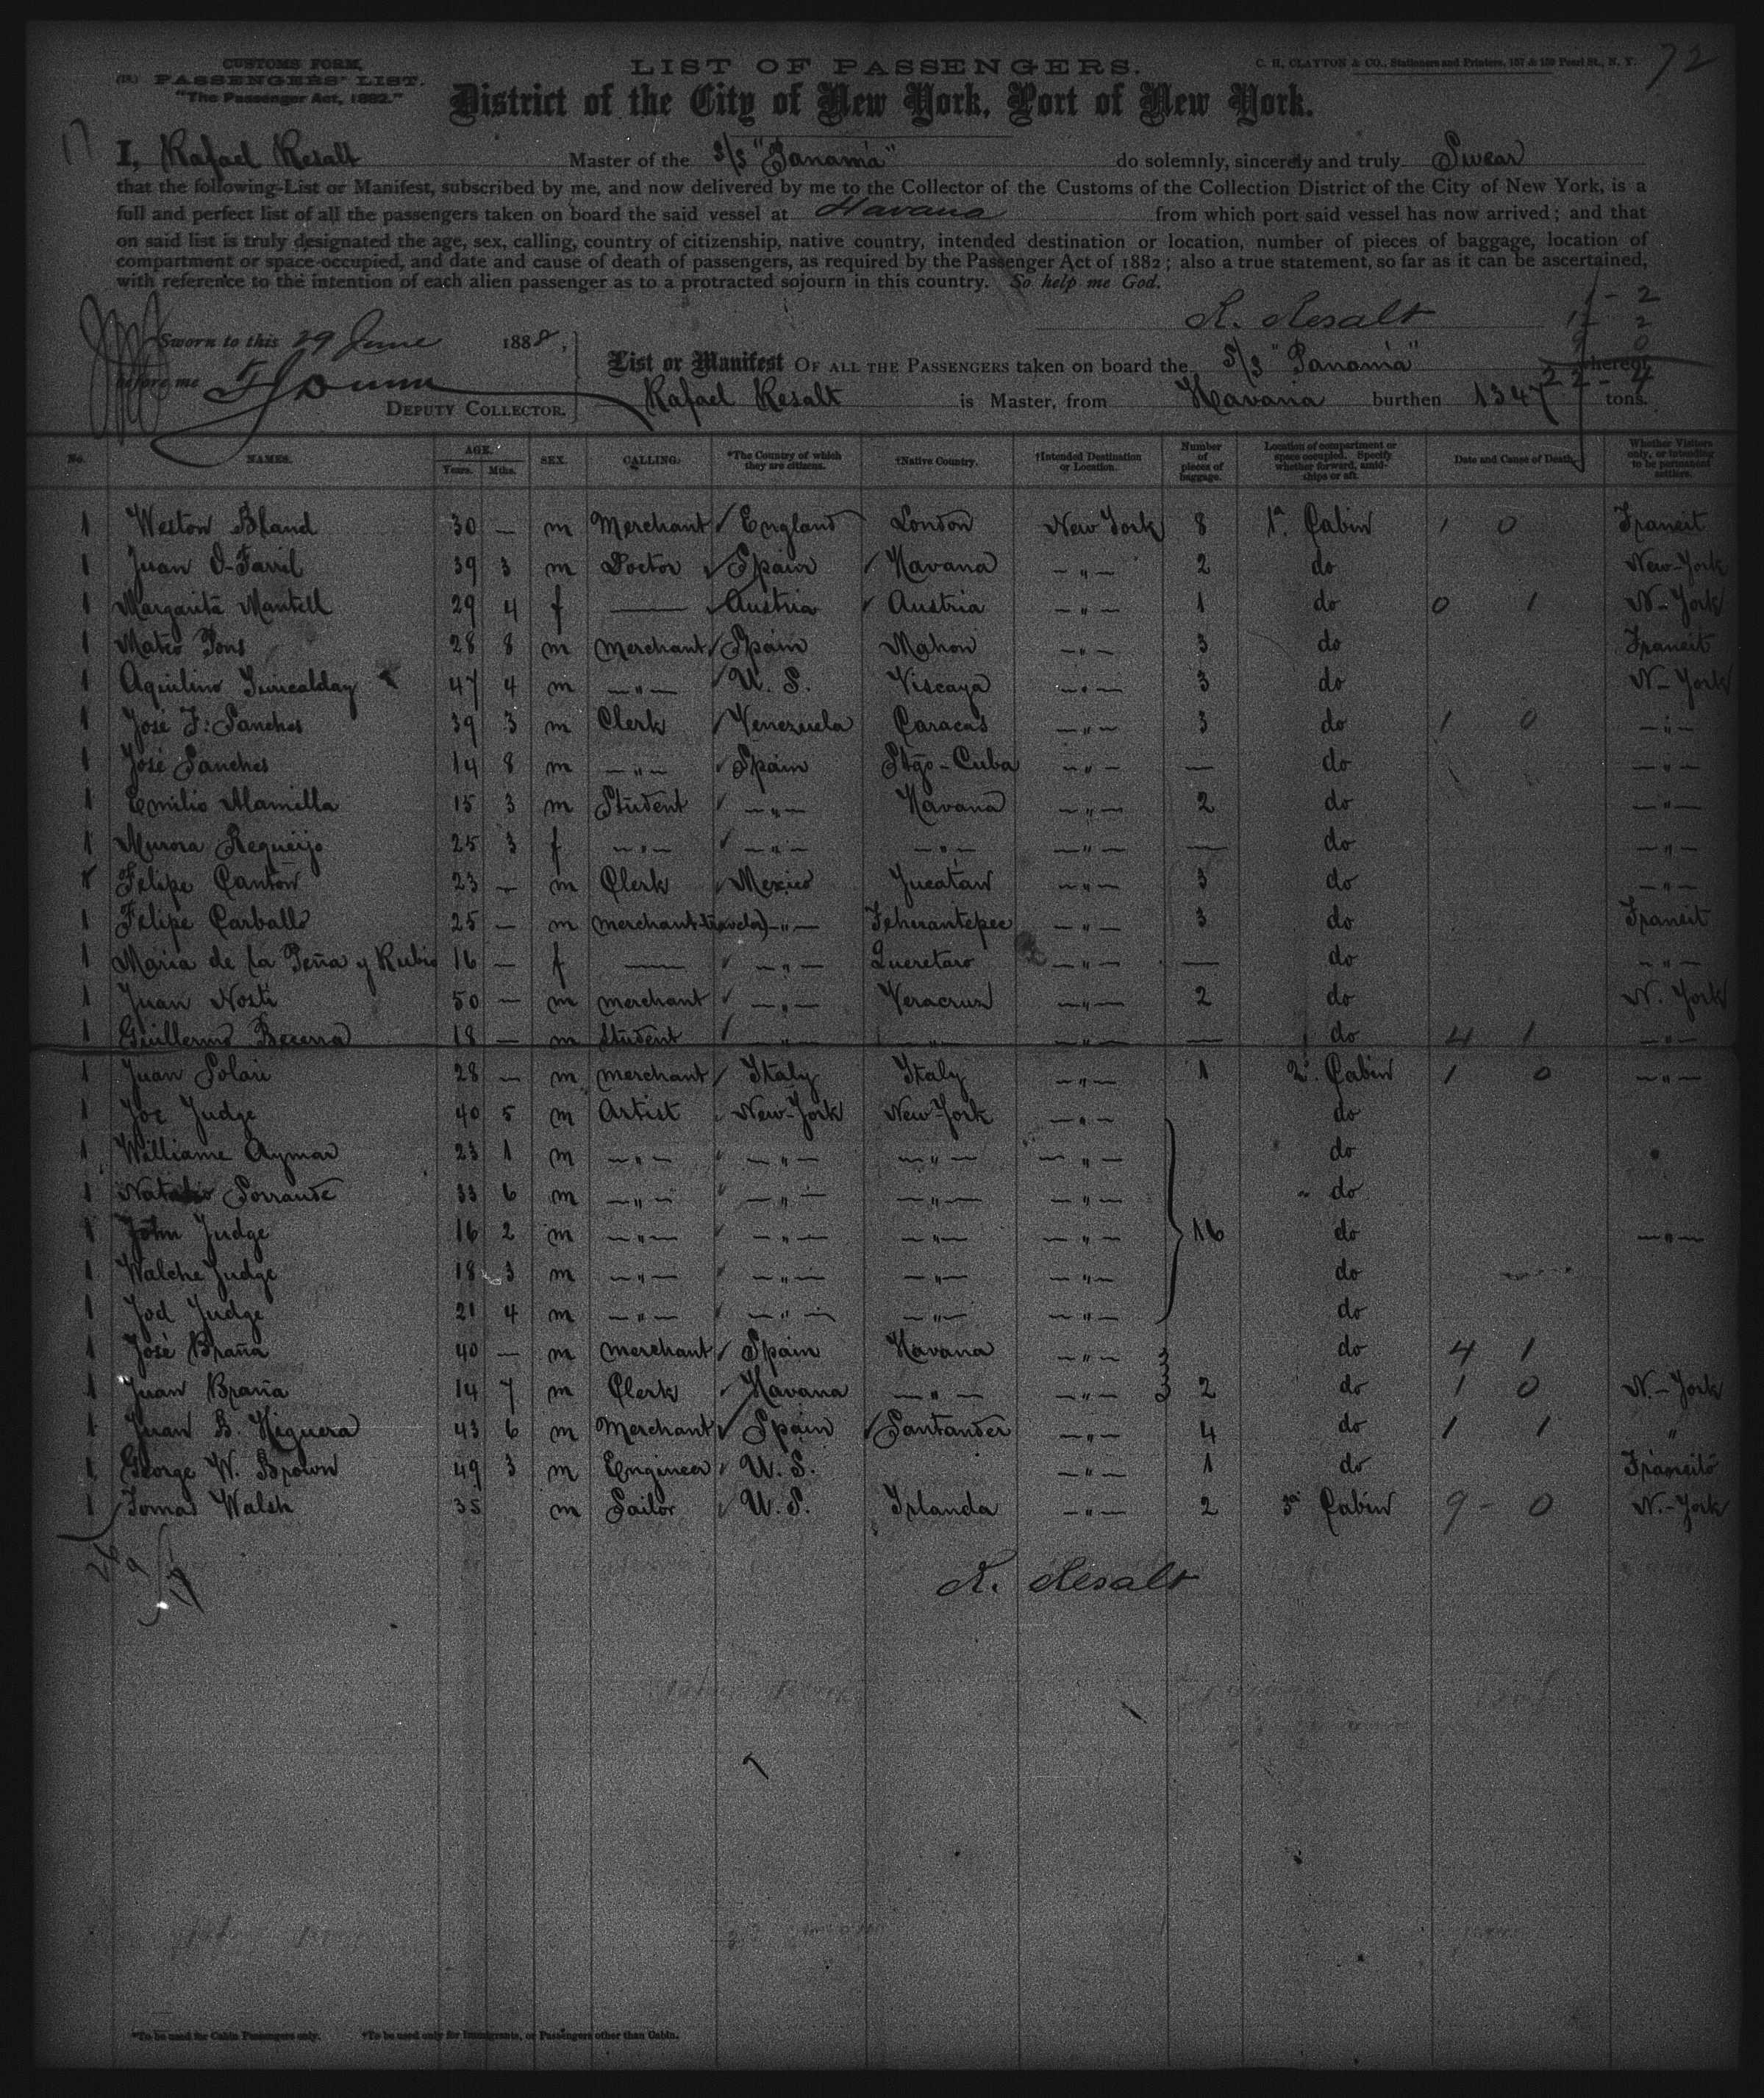 72
CUSTOMS FORM.
PASSENGERS' LIST.
"The Passenger Act, 1882."
LIST OF PASSENGERS.
C. H. CLAYTON & CO., Stationers and Printers, 157 & 159 Pearl St., N. Y.
District of the City of New York, Port of New York.
17
I, Rafael Resalt Master of the S/S "Panamá" do solemnly, sincerely and truly Swear
that the following List or Manifest, subscribed by me, and now delivered by me to the Collector of the Customs of the Collection District of the City of New York, is a
full and perfect list of all the passengers taken on board the said vessel at Havana from which port said vessel has now arrived; and that
on said list is truly designated the age, sex, calling, country of citizenship, native country, intended destination or location, number of pieces of baggage, location of
compartment or space occupied, and date and cause of death of passengers, as required by the Passenger Act of 1882; also a true statement, so far as it can be ascertained,
with reference to the intention of each alien passenger as to a protracted sojourn in this country. So help me God.
R. Resalt
Sworn to this 29 June 1888,
before me
DEPUTY COLLECTOR.
List or Manifest OF ALL THE PASSENGERS taken on board the S/S "Panamá" whereof
Rafael Resalt is Master, from Havana burthen 1347 tons.
22 - 4
No. NAMES. AGE. Years. Mths. SEX. CALLING. *The Country of which they are citizens. †Native Country. †Intended Destination or Location. Number of pieces of baggage. Location of compartment or space occupied. Specify whether forward, amidships or aft. Date and Cause of Death. Whether Visitors only, or intending to be permanent settlers.
1 Weston Bland 30 — m Merchant England London New York 8 1ª Cabin 1 0 Transit
1 Juan O-Farril 39 3 m Doctor Spain Havana —"— 2 do New-York
1 Margarita Mantell 29 4 f — Austria Austria —"— 1 do 0 1 N-York
1 Mateo Pons 28 8 m Merchant Spain Mahon —"— 3 do Transit
1 Aquilino 47 4 m —"— U. S. Viscaya —"— 3 do N-York
1 José F. Sanches 39 3 m Clerk Venezuela Caracas —"— 3 do 1 0 —"—
1 José Sanches 14 8 m —"— Spain Stgo-Cuba —"— — do —"—
1 Emilio Mamilla 15 3 m Student —"— Havana —"— 2 do —"—
1 Aurora Requeijo 25 3 f —"— —"— —"— —"— — do —"—
1 Felipe Canton 23 — m Clerk Mexico Yucatan —"— 3 do —"—
1 Felipe Carballo 25 — m merchant-travelor) —"— Tehuantepec —"— 3 do Transit
1 Maria de la Peña y Rubio 16 — f — —"— Queretaro —"— — do —"—
1 Juan Nosti 50 — m merchant —"— Veracruz —"— 2 do N. York
1 Guillermo Becerra 18 — m Student —"— —"— —"— — do 4 1 —"—
1 Juan Solari 28 — m merchant Italy Italy —"— 1 2ª Cabin 1 0 —"—
1 Joe Judge 40 5 m Artist New-York New-York —"— do
1 Williams Aymar 23 1 m —"— —"— —"— —"— do
1 33 6 m —"— —"— —"— —"— do
1 John Judge 16 2 m —"— —"— —"— —"— 16 do —"—
1 Walche Judge 18 3 m —"— —"— —"— —"— do
1 Jod Judge 21 4 m —"— —"— —"— —"— do
1 José Braña 40 — m merchant Spain Havana —"— do 4 1
1 Juan Braña 14 7 m Clerk Havana —"— —"— 2 do 1 0 N.-York
1 Juan B. Higuera 43 6 m Merchant Spain Santander —"— 4 do 1 1 "
1 George W. Brown 49 3 m Engineer U. S. —"— 1 do Transito
1 Tomas Walsh 35 m Sailor U. S. Irlanda —"— 2 3ª Cabin 9 - 0 N.-York
R. Resalt
*To be used for Cabin Passengers only. †To be used only for Immigrants, or Passengers other than Cabin.